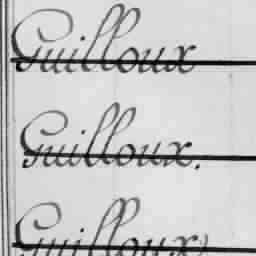 Guilloux
Guilloux.
Guilloux